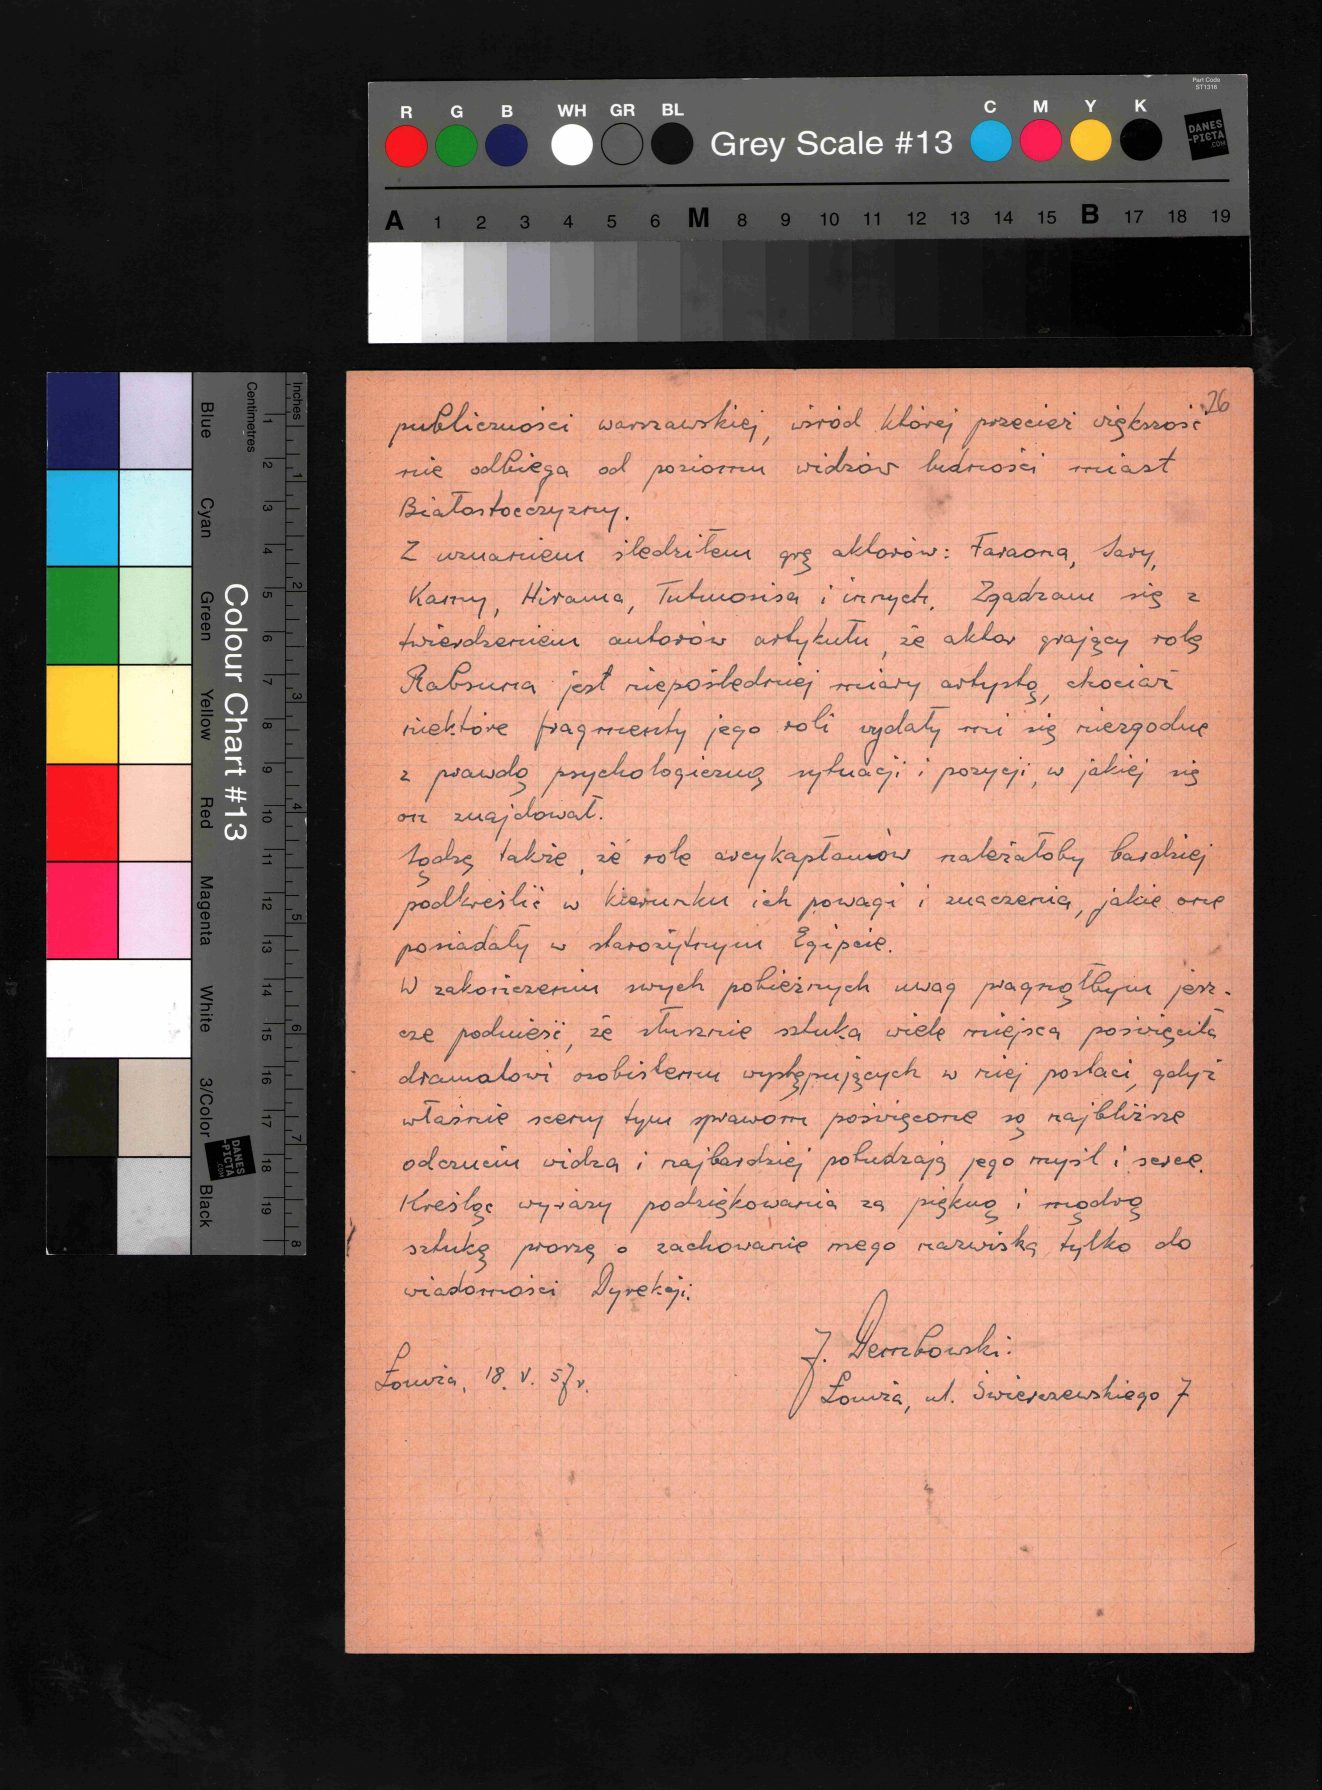 Part Code
ST1316
R G B WH GR BL Grey Scale #13 C M Y K
DANES
-PICTA
.COM
A 1 2 3 4 5 6 M 8 9 10 11 12 13 14 15 B 17 18 19
Colour Chart #13
Blue Cyan Green Yellow Red Magenta White 3/Color Black
Centimetres 1 2 3 4 5 6 7 8 9 10 11 12 13 14 15 16 17 18 19
Inches 1 2 3 4 5 6 7 8
DANES
-PICTA
.COM
26
publiczności warszawskiej, wśród której przecież większość
nie odbiega od poziomu widzów ludności miast
Białostocczyzny.
Z uznaniem śledziłem grę aktorów: Faraona, Sary,
Kamy, Hirama, Tutmosisa i innych. Zgadzam się z
twierdzeniem autorów artykułu, że aktor grający rolę
Rabsuna jest niepośledniej miary artystą, chociaż
niektóre fragmenty jego roli wydały mi się niezgodne
z prawdą psychologiczną sytuacji i pozycji, w jakiej się
on znajdował.
Sądzę także, że rolę arcykapłanów należałoby bardziej
podkreślić w kierunku ich powagi i znaczenia, jakie one
posiadały w starożytnym Egipcie.
W zakończeniu swych pobieżnych uwag pragnąłbym jesz-
cze podnieść, że słusznie sztuka wiele miejsca poświęciła
dramatowi osobistemu występujących w niej postaci, gdyż
właśnie sceny tym sprawom poświęcone są najbliższe
odczuciu widza i najbardziej pobudzają jego myśl i serce.
Kreśląc wyrazy podziękowania za piękną i mądrą
sztukę proszę o zachowanie mego nazwiska tylko do
wiadomości Dyrekcji.
J. Dembowski.
Łomża, 18. V. 57 r.
Łomża, ul. Świerczewskiego 7